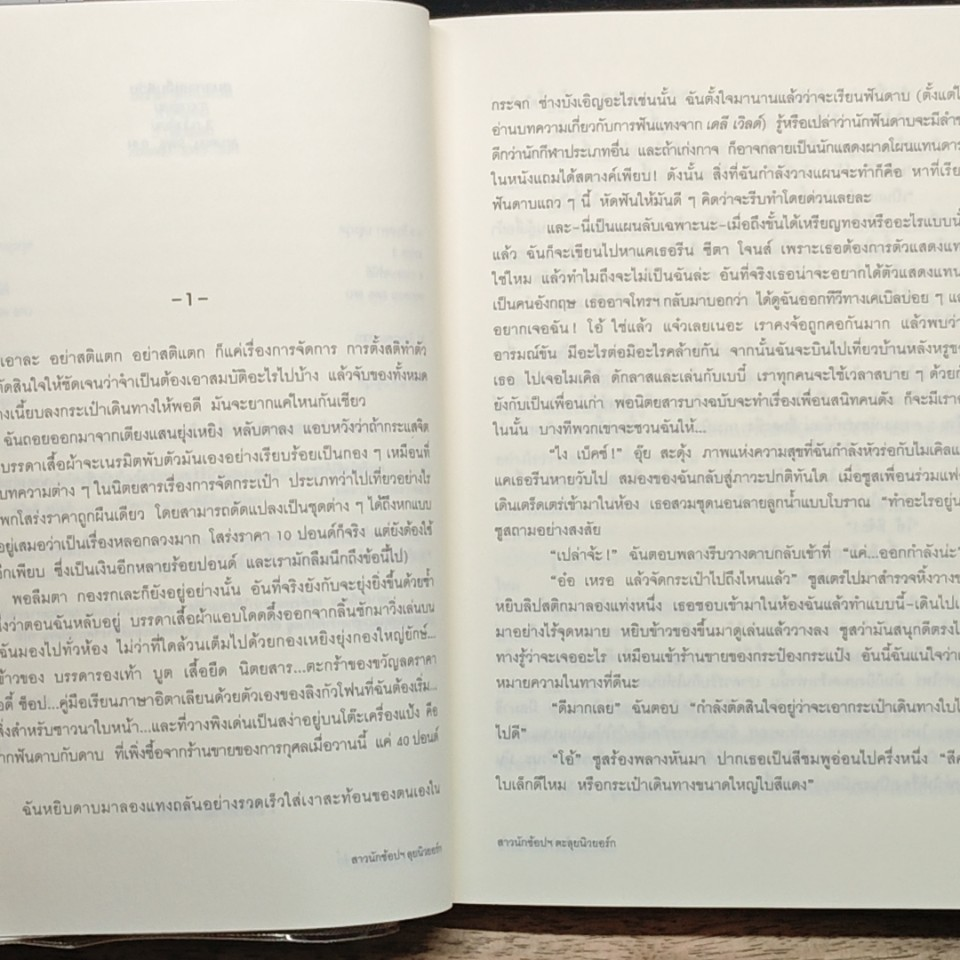 –1–
เอาละ อย่าสติแตก อย่าสติแตก ก็แค่เรื่องการจัดการ การตั้งสติทำตัว
ตัดสินใจให้ชัดเจนว่าจำเป็นต้องเอาสมบัติอะไรไปบ้าง แล้วจับของทั้งหมด
เนี้ยบลงกระเป๋าเดินทางให้พอดี มันจะยากแค่ไหนกันเชียว
ฉันถอยออกมาจากเตียงแสนยุ่งเหยิง หลับตาลง แอบหวังว่าถ้ากระแสจิต
บรรดาเสื้อผ้าจะเนรมิตพับตัวมันเองอย่างเรียบร้อยเป็นกอง ๆ เหมือนที่
บทความต่าง ๆ ในนิตยสารเรื่องการจัดกระเป๋า ประเภทว่าไปเที่ยวอย่างไร
พกโสร่งราคาถูกผืนเดียว โดยสามารถดัดแปลงเป็นชุดต่าง ๆ ได้ถึงหกแบบ
อยู่เสมอว่าเป็นเรื่องหลอกลวงมาก โสร่งราคา 10 ปอนด์ก็จริง แต่ยังต้องใช้
อีกเพียบ ซึ่งเป็นเงินอีกหลายร้อยปอนด์ และเรามักลืมนึกถึงข้อนี้ไป)
พอลืมตา กองรกเละก็ยังอยู่อย่างนั้น อันที่จริงยังกับจะยุ่งยิ่งขึ้นด้วยซ้ำ
ว่าตอนฉันหลับอยู่ บรรดาเสื้อผ้าแอบโดดดึ๋งออกจากลิ้นชักมาวิ่งเล่นบน
ฉันมองไปทั่วห้อง ไม่ว่าที่ใดล้วนเต็มไปด้วยกองเหยิงยุ่งกองใหญ่ยักษ์...
ข้าวของ บรรดารองเท้า บูต เสื้อยืด นิตยสาร...ตะกร้าของขวัญลดราคา
ช็อป...คู่มือเรียนภาษาอิตาเลียนด้วยตัวเองของลิงกัวโฟนที่ฉันต้องเริ่ม...
สำหรับซาวนาใบหน้า...และที่วางพิงเด่นเป็นสง่าอยู่บนโต๊ะเครื่องแป้ง คือ
ฟันดาบกับดาบ ที่เพิ่งซื้อจากร้านขายของการกุศลเมื่อวานนี้ แค่ 40 ปอนด์
ฉันหยิบดาบมาลองแทงถลันอย่างรวดเร็วใส่เงาสะท้อนของตนเองใน
สาวนักช้อปฯ ตะลุยนิวยอร์ก
กระจก ช่างบังเอิญอะไรเช่นนั้น ฉันตั้งใจมานานแล้วว่าจะเรียนฟันดาบ (ตั้งแต่ได้
อ่านบทความเกี่ยวกับการฟันแทงจาก เดลี เวิลด์) รู้หรือเปล่าว่านักฟันดาบจะมีลำข
ดีกว่านักกีฬาประเภทอื่น และถ้าเก่งกาจ ก็อาจกลายเป็นนักแสดงผาดโผนแทนดาร
ในหนังแถมได้สตางค์เพียบ! ดังนั้น สิ่งที่ฉันกำลังวางแผนจะทำก็คือ หาที่เรีย
ฟันดาบแถว ๆ นี้ หัดฟันให้มันดี ๆ คิดว่าจะรีบทำโดยด่วนเลยละ
และ–นี่เป็นแผนลับเฉพาะนะ–เมื่อถึงขั้นได้เหรียญทองหรืออะไรแบบนั้
แล้ว ฉันก็จะเขียนไปหาแคเธอรีน ซีตา โจนส์ เพราะเธอต้องการตัวแสดงแท
ใช่ไหม แล้วทำไมถึงจะไม่เป็นฉันล่ะ อันที่จริงเธอน่าจะอยากได้ตัวแสดงแทน
เป็นคนอังกฤษ เธออาจโทรฯ กลับมาบอกว่า ได้ดูฉันออกทีวีทางเคเบิลบ่อย ๆ แ
อยากเจอฉัน! โอ้ ใช่แล้ว แจ๋วเลยเนอะ เราคงจ้อถูกคอกันมาก แล้วพบว่า
อารมณ์ขัน มีอะไรต่อมิอะไรคล้ายกัน จากนั้นฉันจะบินไปเที่ยวบ้านหลังหรูข
เธอ ไปเจอไมเคิล ดักลาสและเล่นกับเบบี้ เราทุกคนจะใช้เวลาสบาย ๆ ด้วยก
ยังกับเป็นเพื่อนเก่า พอนิตยสารบางฉบับจะทำเรื่องเพื่อนสนิทคนดัง ก็จะมีเรา
ในนั้น บางทีพวกเขาจะชวนฉันให้...
“ไง เบ็คซ์!” อุ๊ย สะดุ้ง ภาพแห่งความสุขที่ฉันกำลังหัวร่อกับไมเคิลแ
แคเธอรีนหายวับไป สมองของฉันกลับสู่ภาวะปกติทันใด เมื่อซูสเพื่อนร่วมแฟ
เดินเตร็ดเตร่เข้ามาในห้อง เธอสวมชุดนอนลายลูกน้ำแบบโบราณ “ทำอะไรอยู่น
ซูสถามอย่างสงสัย
“เปล่าจ้ะ!” ฉันตอบพลางรีบวางดาบกลับเข้าที่ “แค่...ออกกำลังน่ะ”
“อ๋อ เหรอ แล้วจัดกระเป๋าไปถึงไหนแล้ว” ซูสเตร่ไปมาสำรวจหิ้งวางข
หยิบลิปสติกมาลองแท่งหนึ่ง เธอชอบเข้ามาในห้องฉันแล้วทำแบบนี้–เดินไปเ
มาอย่างไร้จุดหมาย หยิบข้าวของขึ้นมาดูเล่นแล้ววางลง ซูสว่ามันสนุกดีตรงไ
ทางรู้ว่าจะเจออะไร เหมือนเข้าร้านขายของกระป๋องกระแป๋ง อันนี้ฉันแน่ใจว่าเ
หมายความในทางที่ดีนะ
“ดีมากเลย” ฉันตอบ “กำลังตัดสินใจอยู่ว่าจะเอากระเป๋าเดินทางใบไ
ไปดี”
“โอ้” ซูสร้องพลางหันมา ปากเธอเป็นสีชมพูอ่อนไปครึ่งหนึ่ง “สีค
ใบเล็กดีไหม หรือกระเป๋าเดินทางขนาดใหญ่ใบสีแดง”
สาวนักช้อปฯ ตะลุยนิวยอร์ก